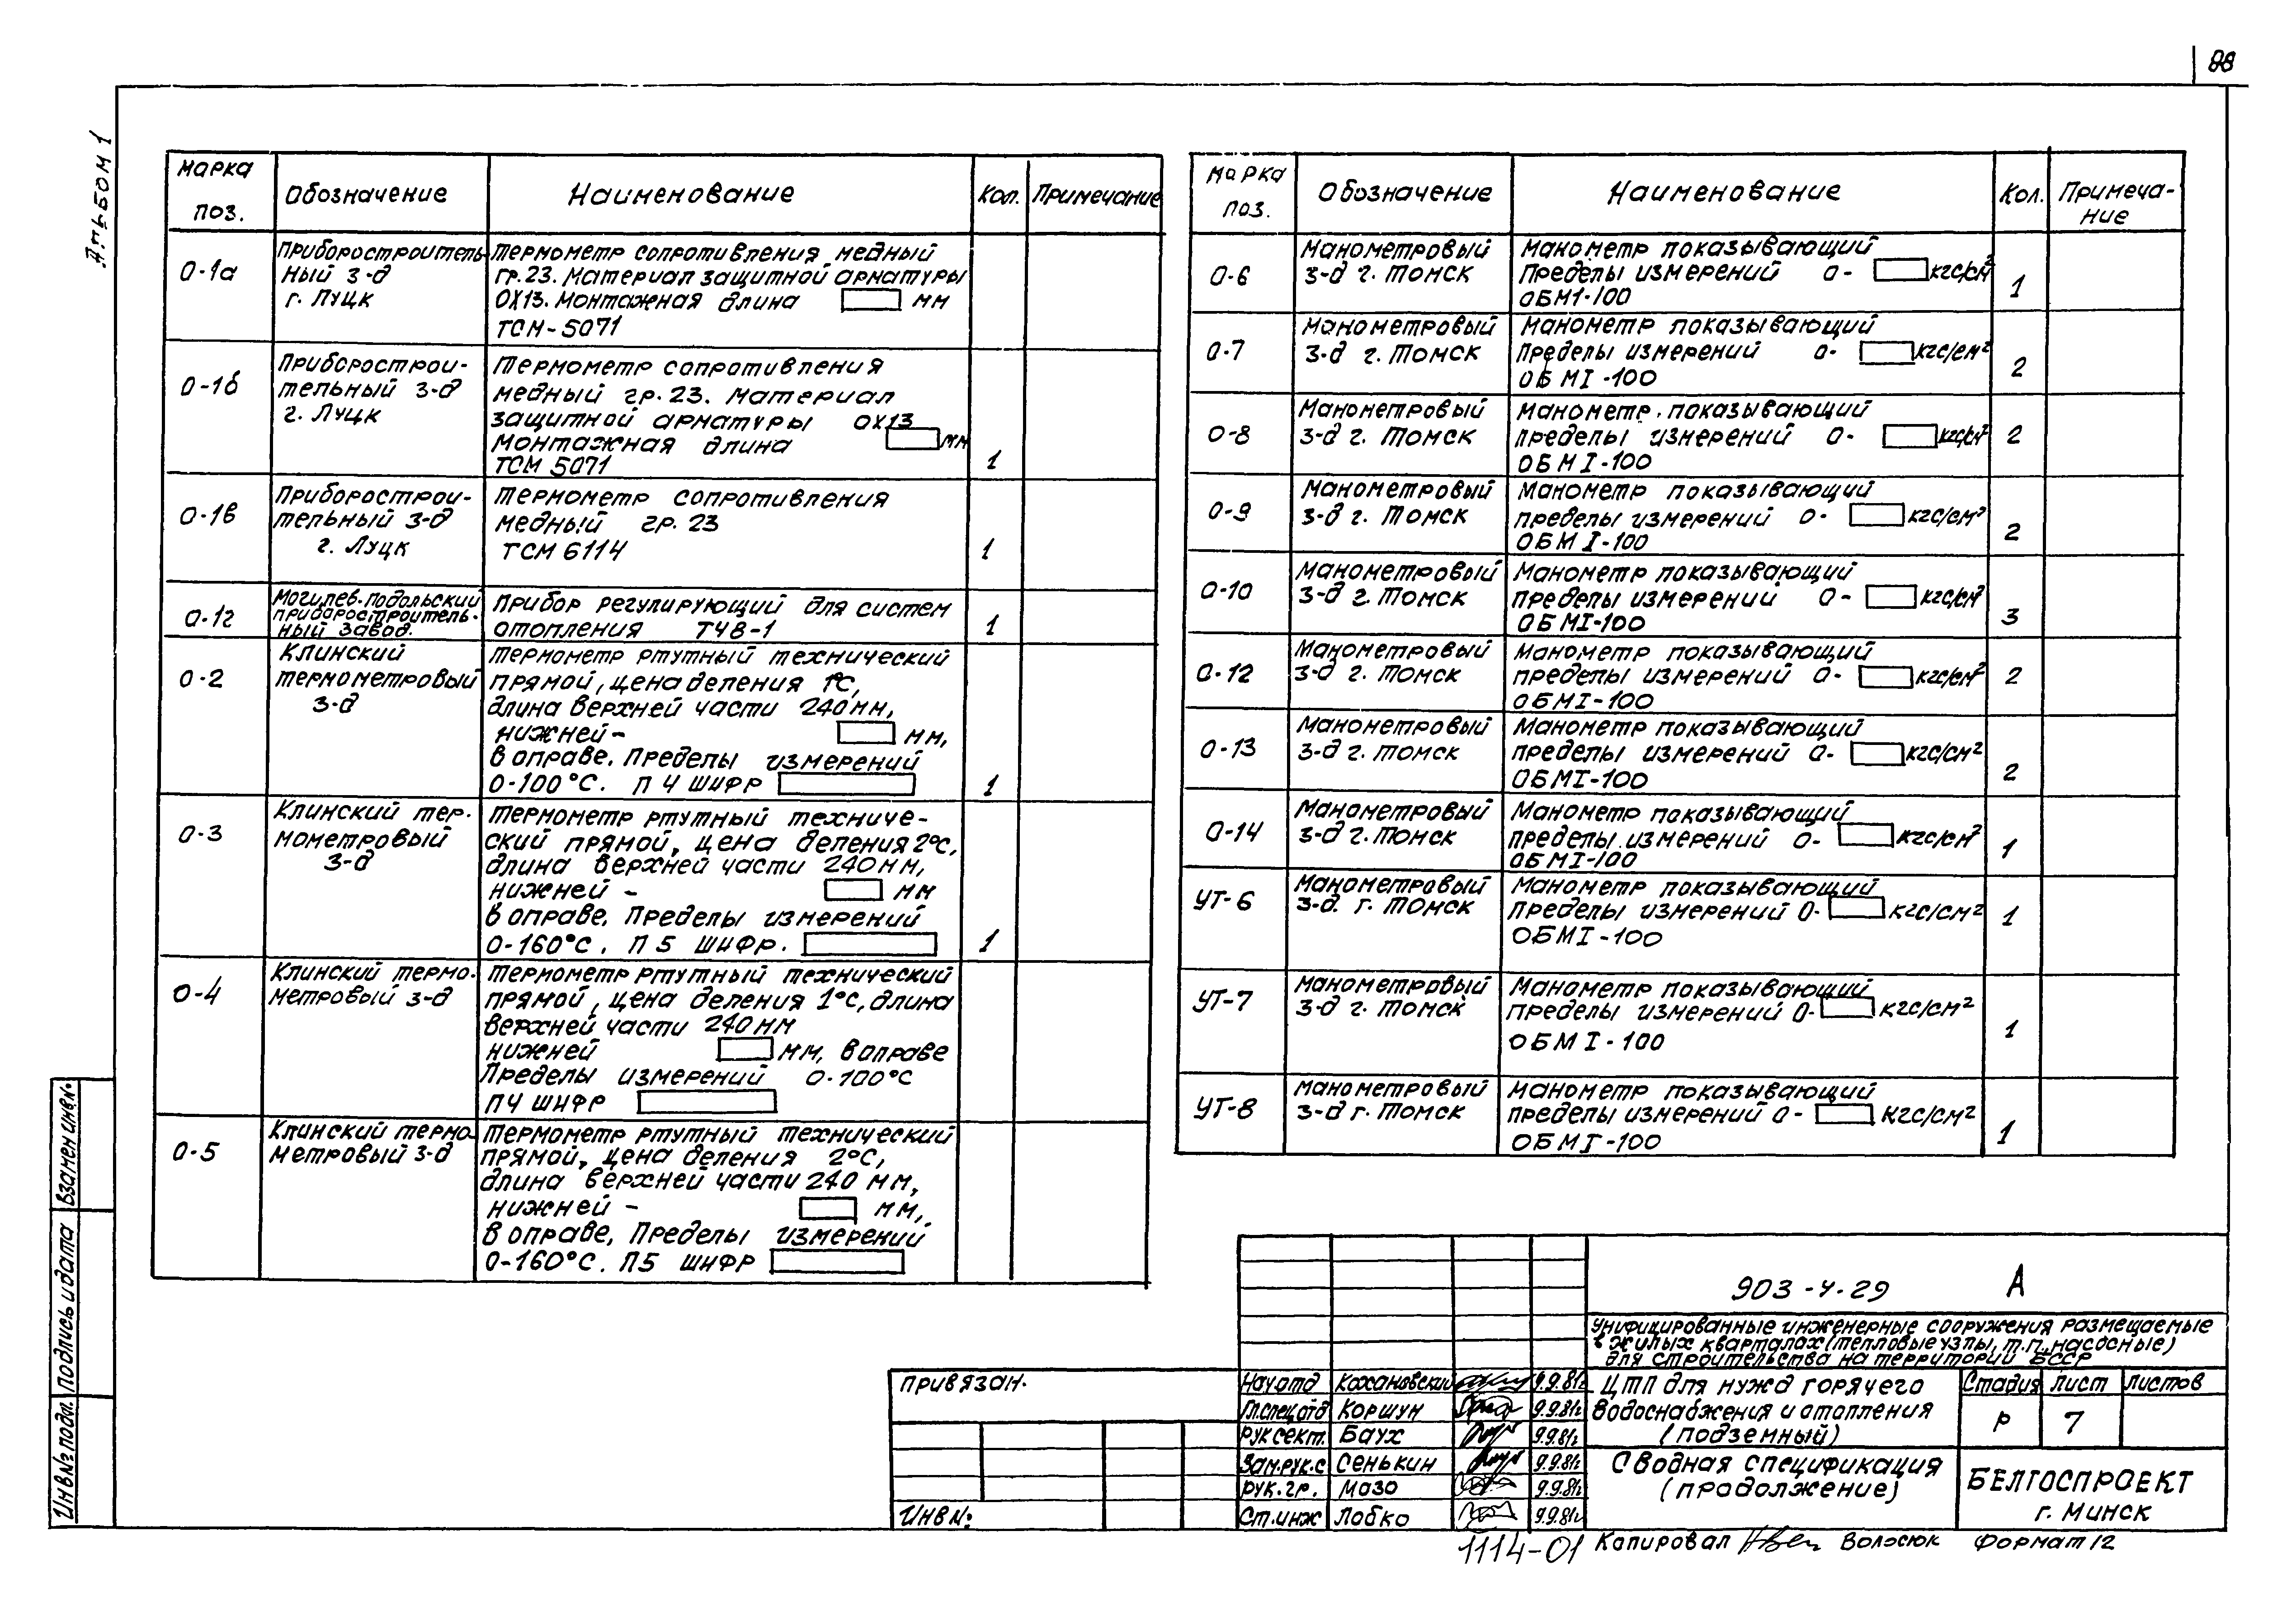 88
Альбом 1
Марка поз. Обозначение Наименование Кол. Примечание
О-1а
Приборостроитель-
ный з-д
г. Луцк
Термометр сопротивления медный
гр.23. Материал защитной арматуры
ОХ13. Монтажная длина мм
ТСМ-5071
О-1б
Приборострои-
тельный з-д
г. Луцк
Термометр сопротивления
медный гр. 23. Материал
защитной арматуры ОХ13
монтажная длина мм
ТСМ 5071
1
О-1в
Приборострои-
тельный з-д
г. Луцк
Термометр сопротивления
медный гр. 23
ТСМ 6114
1
О-1г
Могилев-Подольский
приборостроитель-
ный завод.
Прибор регулирующий для систем
отопления Т48-1
1
О-2
Клинский
термометровый
з-д
Термометр ртутный технический
прямой, цена деления 1°С,
длина верхней части 240 мм,
нижней- мм,
в оправе. Пределы измерений
0-100°С. П 4 шифр
1
О-3
Клинский тер-
мометровый
з-д
Термометр ртутный техниче-
ский прямой, цена деления 2°С,
длина верхней части 240 мм,
нижней - мм
в оправе. Пределы измерений
0-160°С. П 5 шифр.
1
О-4
Клинский термо-
метровый з-д
Термометр ртутный технический
прямой, цена деления 1°С, длина
верхней части 240 мм
нижней мм, в оправе
Пределы измерений 0-100°С
П4 шифр
О-5
Клинский термо-
метровый з-д
Термометр ртутный технический
прямой, цена деления 2°С,
длина верхней части 240 мм,
нижней - мм,
в оправе. Пределы измерений
0-160°С. П5 шифр
Марка поз. Обозначение Наименование Кол. Примеча-
ние
О-6
Манометровый
з-д г. Томск
Манометр показывающий
Пределы измерений 0- кгс/см²
ОБМ1-100
1
О-7
Манометровый
з-д г. Томск
Манометр показывающий
Пределы измерений 0- кгс/см²
ОБМI-100
2
О-8
Манометровый
з-д г. Томск
Манометр показывающий
пределы измерений 0- кгс/см²
ОБМI-100
2
О-9
Манометровый
з-д г. Томск
Манометр показывающий
пределы измерений 0- кгс/см²
ОБМI-100
2
О-10
Манометровый
з-д г. Томск
Манометр показывающий
пределы измерений 0- кгс/см²
ОБМI-100
3
О-12
Манометровый
з-д г. Томск
Манометр показывающий
пределы измерений 0- кгс/см²
ОБМI-100
2
О-13
Манометровый
з-д г. Томск
Манометр показывающий
пределы измерений 0- кгс/см²
ОБМI-100
2
О-14
Манометровый
з-д г. Томск
Манометр показывающий
пределы измерений 0- кгс/см²
ОБМI-100
1
УТ-6
Манометровый
з-д. г. Томск
Манометр показывающий
Пределы измерений 0- кгс/см²
ОБМI-100
1
УТ-7
Манометровый
з-д г. Томск
Манометр показывающий
пределы измерений 0- кгс/см²
ОБМI-100
1
УТ-8
Манометровый
з-д г. Томск
Манометр показывающий
пределы измерений 0- кгс/см²
ОБМI-100
1
903-4-29 А
Унифицированные инженерные сооружения размещаемые
в жилых кварталах (тепловые узлы, т.п., насосные)
для строительства на территории БССР
Привязан.
Инв№:
Нач.отд Кохановский 9.9.81г
Гл.спец.отд Коршун 9.9.81г
Рук сект. Баух 9.9.81г
Зам.рук.с Сенькин 9.9.81г
Рук.гр. Мазо 9.9.81г
Ст.инж Лобко 9.9.81г
ЦТП для нужд горячего
водоснабжения и отопления
(подземный)
Стадия Лист Листов
Р 7
Сводная спецификация
(продолжение)
БЕЛГОСПРОЕКТ
г. Минск
1114-01 Копировал Волосюк Формат 12
Инв№ подл. Подпись и дата Взамен инв.№